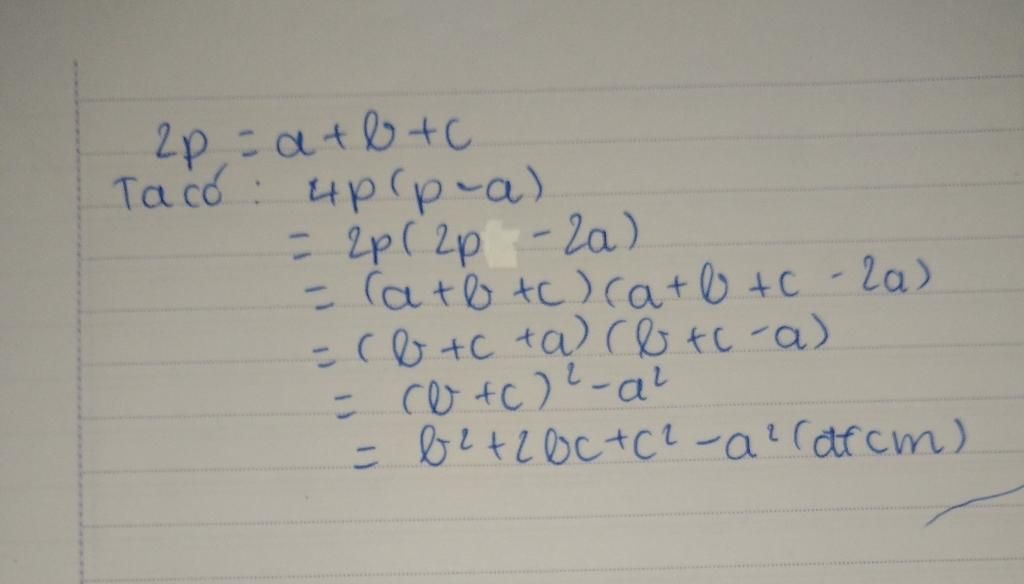 2p = a + b + c
Ta có : 4p(p - a)
= 2p(2p - 2a)
= (a + b + c)(a + b + c - 2a)
= (b + c + a)(b + c - a)
= (b + c)² - a²
= b² + 2bc + c² - a² (đfcm)